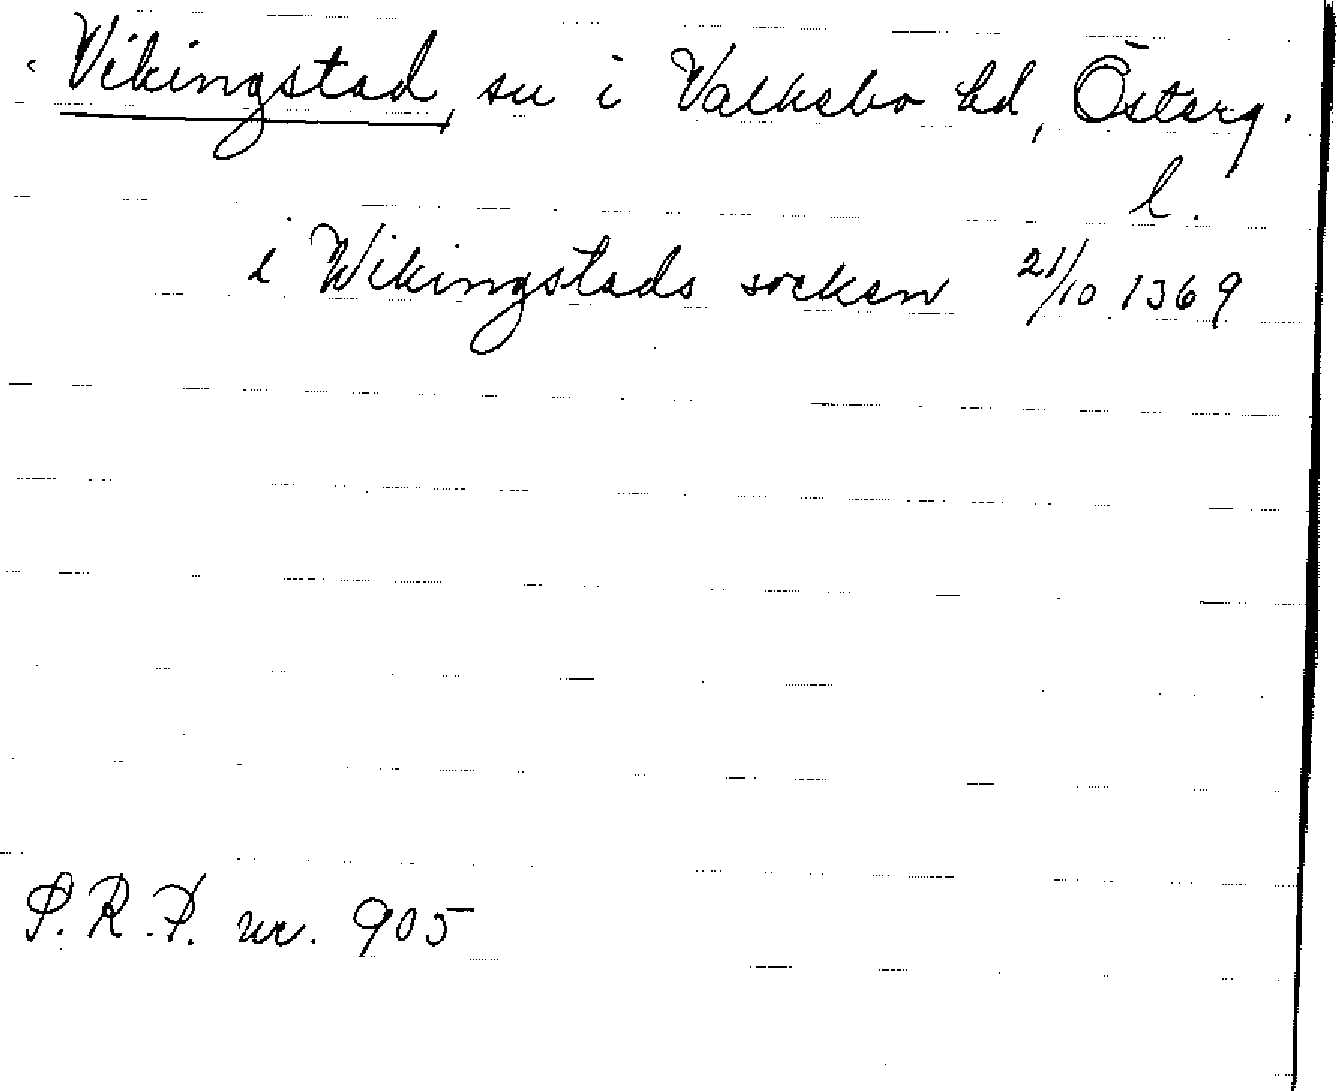 Vikingstad, sn i Valkebo hd, Österg.
l.
i Wikingstads socken 21/10 1369
S.R.P. nr. 905